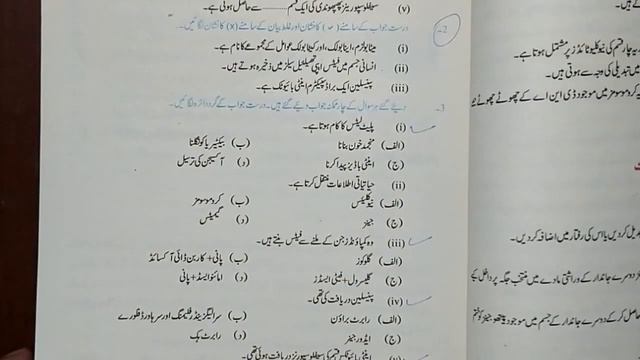 (v) سیفلوسپورینز پھپھوندی کی ایک قسم ........ سے حاصل ہوتی ہے۔
2- درست جواب کے سامنے (✓) کا نشان اور غلط بیان کے سامنے (x) کا نشان لگائیں۔
(i) میٹابولزم، اینابولک، اور کیٹابولک عوامل کے مجموعے کا نام ہے۔
(ii) انسانی جسم میں فیٹس ایپی تھیلیئل سیلز میں ذخیرہ ہوتے ہیں۔
(iii) پنسیلین ایک براڈ سپیکٹرم اینٹی بائیوٹک ہے۔
3- دیئے گئے ہر سوال کے چار ممکنہ جواب دیئے گئے ہیں۔ درست جواب کے گرد دائرہ لگائیں۔
(i) پلیٹ لیٹس کا کام ہوتا ہے۔
(الف) منجمد خون بنانا (ب) بیکٹیریا کو نگلنا
(ج) اینٹی باڈیز پیدا کرنا (د) آکسیجن کی ترسیل
(ii) حیاتیاتی اطلاعات منتقل کرتا ہے۔
(الف) نیوکلیئس (ب) کروموسومز
(ج) جینز (د) گیمیٹس
(iii) وہ کمپاؤنڈز جن کے ملنے سے فیٹس بنتے ہیں۔
(الف) گلوکوز (ب) پانی + کاربن ڈائی آکسائڈ
(ج) گلیسرول + فیٹی ایسڈز (د) امائنو ایسڈ + پانی
(iv) پنسیلین دریافت کی تھی۔
(الف) رابرٹ براؤن (ب) سر الیگزینڈر فلیمنگ اور سر ہاورڈ فلورے
(ج) ایڈورڈ جینر (د) رابرٹ ہک
یہ چار قسم کی نیوکلیوٹائڈز پر مشتمل ہوتا ہے۔
میں تبدیلی کی وجہ سے ہوتی ہیں۔
کروموسومز میں موجود ڈی این اے کے چھوٹے چھوٹے
تبدیل کر دیں یا اس کی رفتار میں اضافہ کر دیں۔
دوسرے جاندار کے وراثتی مادے میں منتخب جگہ پر داخل
حاصل کر کے دوسرے جاندار کے جسم میں موجود